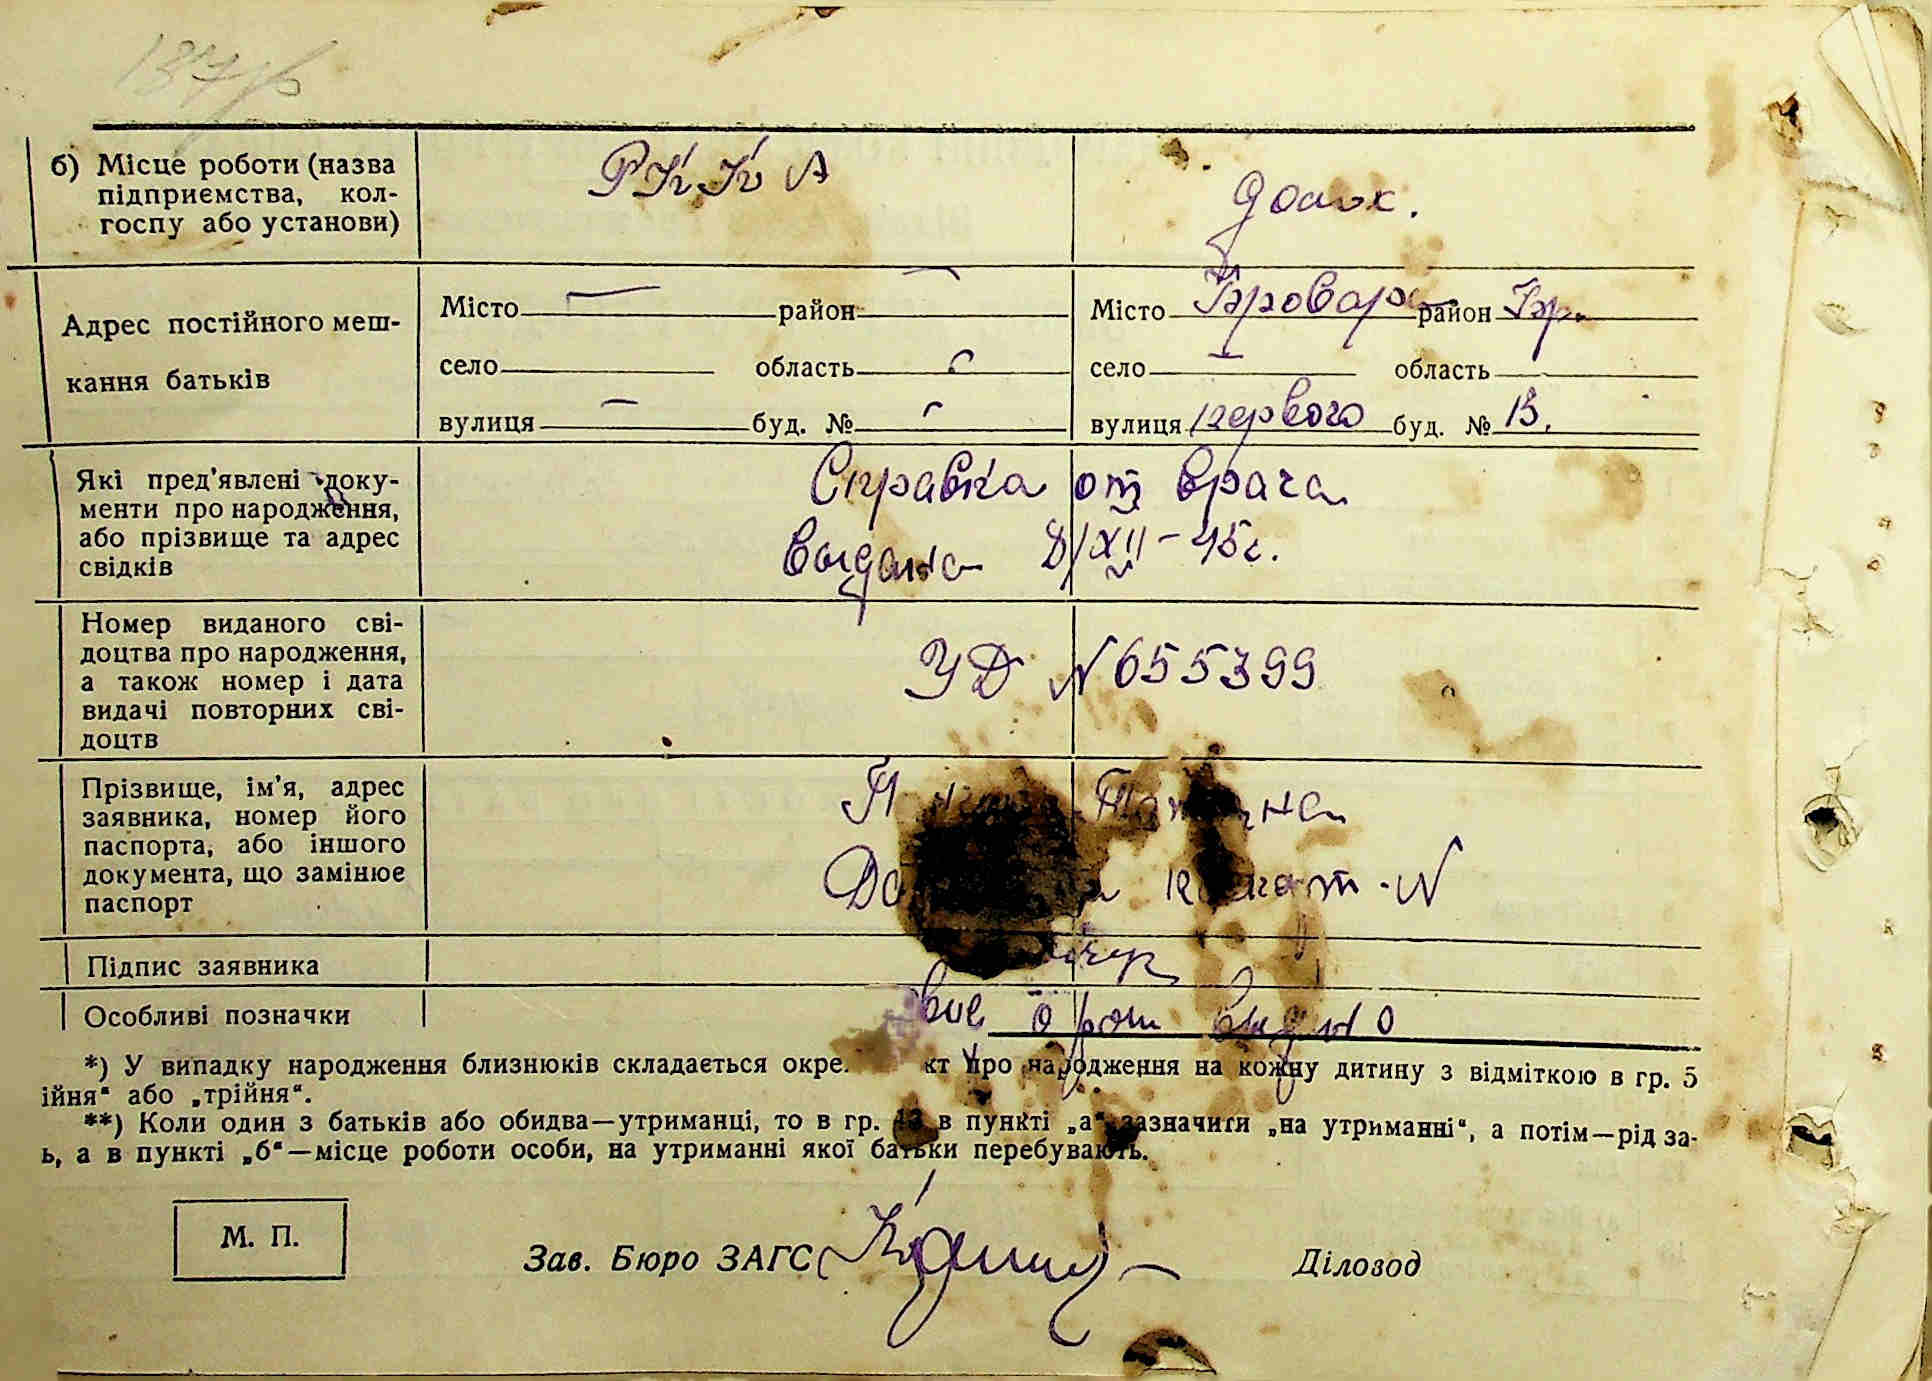 137
б) Місце роботи (назва
підприємства, кол-
госпу або установи)
РККА
домох.
Адрес постійного меш-
кання батьків
Місто — район —
село область
вулиця — буд. №
Місто Бровари район Бр.
село — область
вулиця первого буд. № 13.
Які пред'явлені доку-
менти про народження,
або прізвище та адрес
свідків
Справка от врача
выдана 8/XII-45г.
Номер виданого сві-
доцтва про народження,
а також номер і дата
видачі повторних сві-
доцтв
УД N 655399
Прізвище, ім'я, адрес
заявника, номер його
паспорта, або іншого
документа, що замінює
паспорт
N
Підпис заявника
Особливі позначки
*) У випадку народження близнюків складається окре кт про народження на кожну дитину з відміткою в гр. 5
ійня“ або „трійня“.
**) Коли один з батьків або обидва—утриманці, то в гр. 13 в пункті „а“ зазначити „на утриманні“, а потім—рід за-
ь, а в пункті „б“—місце роботи особи, на утриманні якої батьки перебувають.
М. П.
Зав. Бюро ЗАГС
Діловод